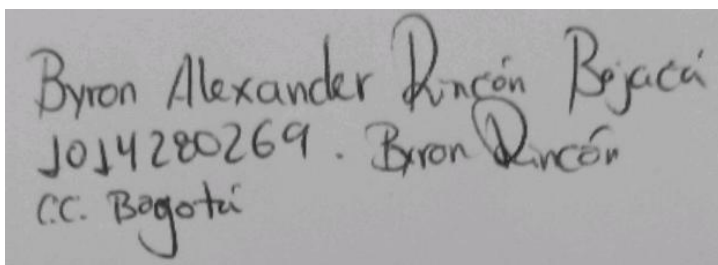 Byron Alexander Rincón Bojacá
1014280269. Byron Rincón
C.C. Bogotá